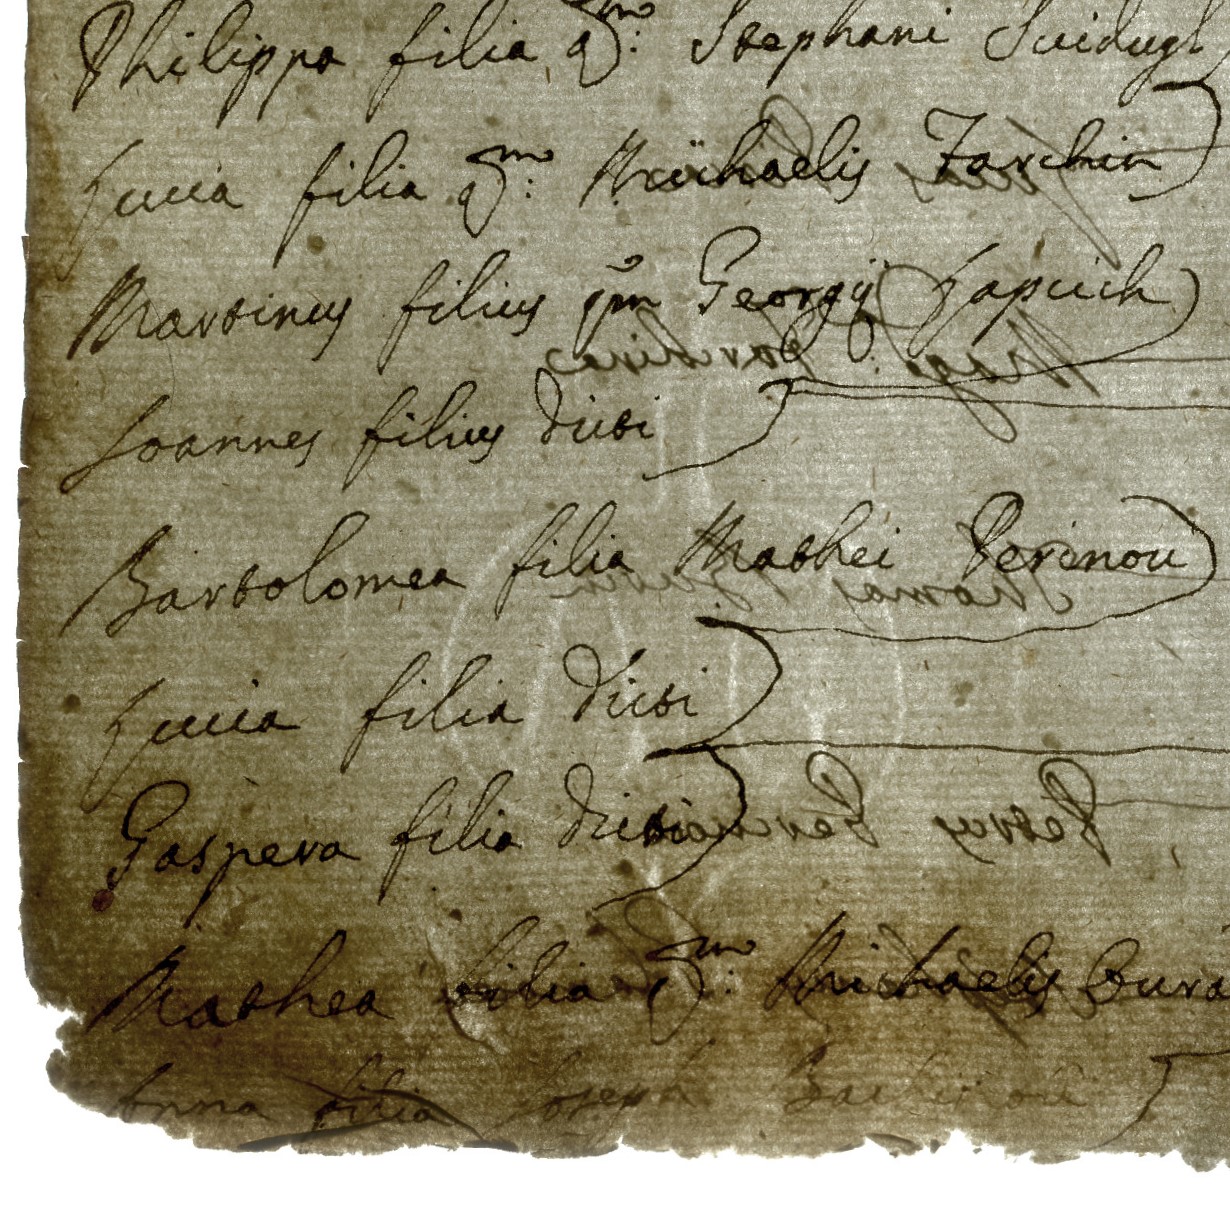 Philippa filia qm: Stephani
Lucia filia qm: Michaelis Zarchin
Martinus filius qm Georgij Lapcich
Joannes filius dicti
Bartolomea filia Mathei Perinou
Lucia filia dicti
Gaspera filia dicti
Mathea filia qm: Michaelis
Anna filia Joseph